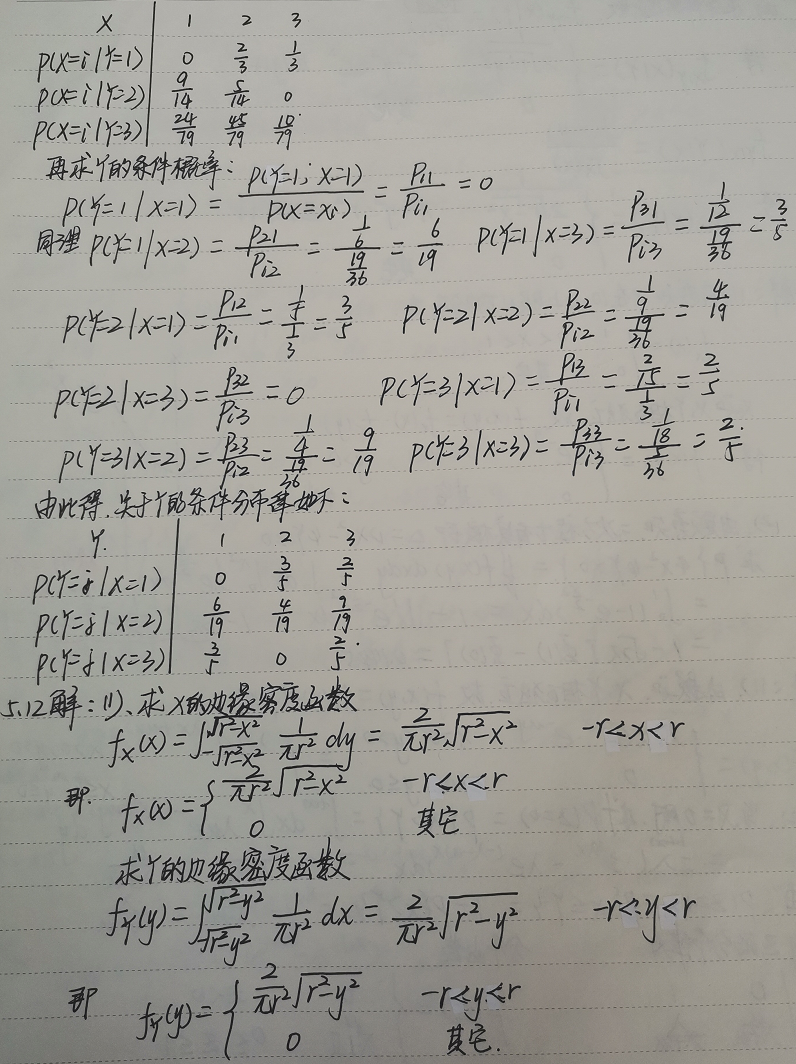 X | 1 2 3
P(X=i|Y=1) | 0 2/3 1/3
P(X=i|Y=2) | 9/14 5/14 0
P(X=i|Y=3) | 24/79 45/79 10/79
再求Y的条件概率:
P(Y=1|X=1) = P(Y=1; X=1)/P(X=xi) = P11/Pi1 = 0
同理 P(Y=1|X=2) = P21/Pi2 = (1/6)/(19/36) = 6/19 P(Y=1|X=3) = P31/Pi3 = (1/12)/(19/36) = 3/5
P(Y=2|X=1) = P12/Pi1 = (1/5)/(1/3) = 3/5 P(Y=2|X=2) = P22/Pi2 = (1/9)/(19/36) = 4/19
P(Y=2|X=3) = P32/Pi3 = 0 P(Y=3|X=1) = P13/Pi1 = (2/15)/(1/3) = 2/5
P(Y=3|X=2) = P23/Pi2 = (1/4)/(19/36) = 9/19 P(Y=3|X=3) = P33/Pi3 = (1/18)/(5/36) = 2/5
由此得,关于Y的条件分布律如下:
Y. | 1 2 3
P(Y=j|X=1) | 0 3/5 2/5
P(Y=j|X=2) | 6/19 4/19 9/19
P(Y=j|X=3) | 3/5 0 2/5
5.12解:(1)、求X的边缘密度函数
fX(x) = ∫_{-√(r²-x²)}^{√(r²-x²)} 1/(πr²) dy = 2/(πr²) √(r²-x²) -r<x<r
即. fX(x) = { 2/(πr²) √(r²-x²) -r<x<r
0 其它
求Y的边缘密度函数
fY(y) = ∫_{-√(r²-y²)}^{√(r²-y²)} 1/(πr²) dx = 2/(πr²) √(r²-y²) -r<y<r
即 fY(y) = { 2/(πr²) √(r²-y²) -r<y<r
0 其它.